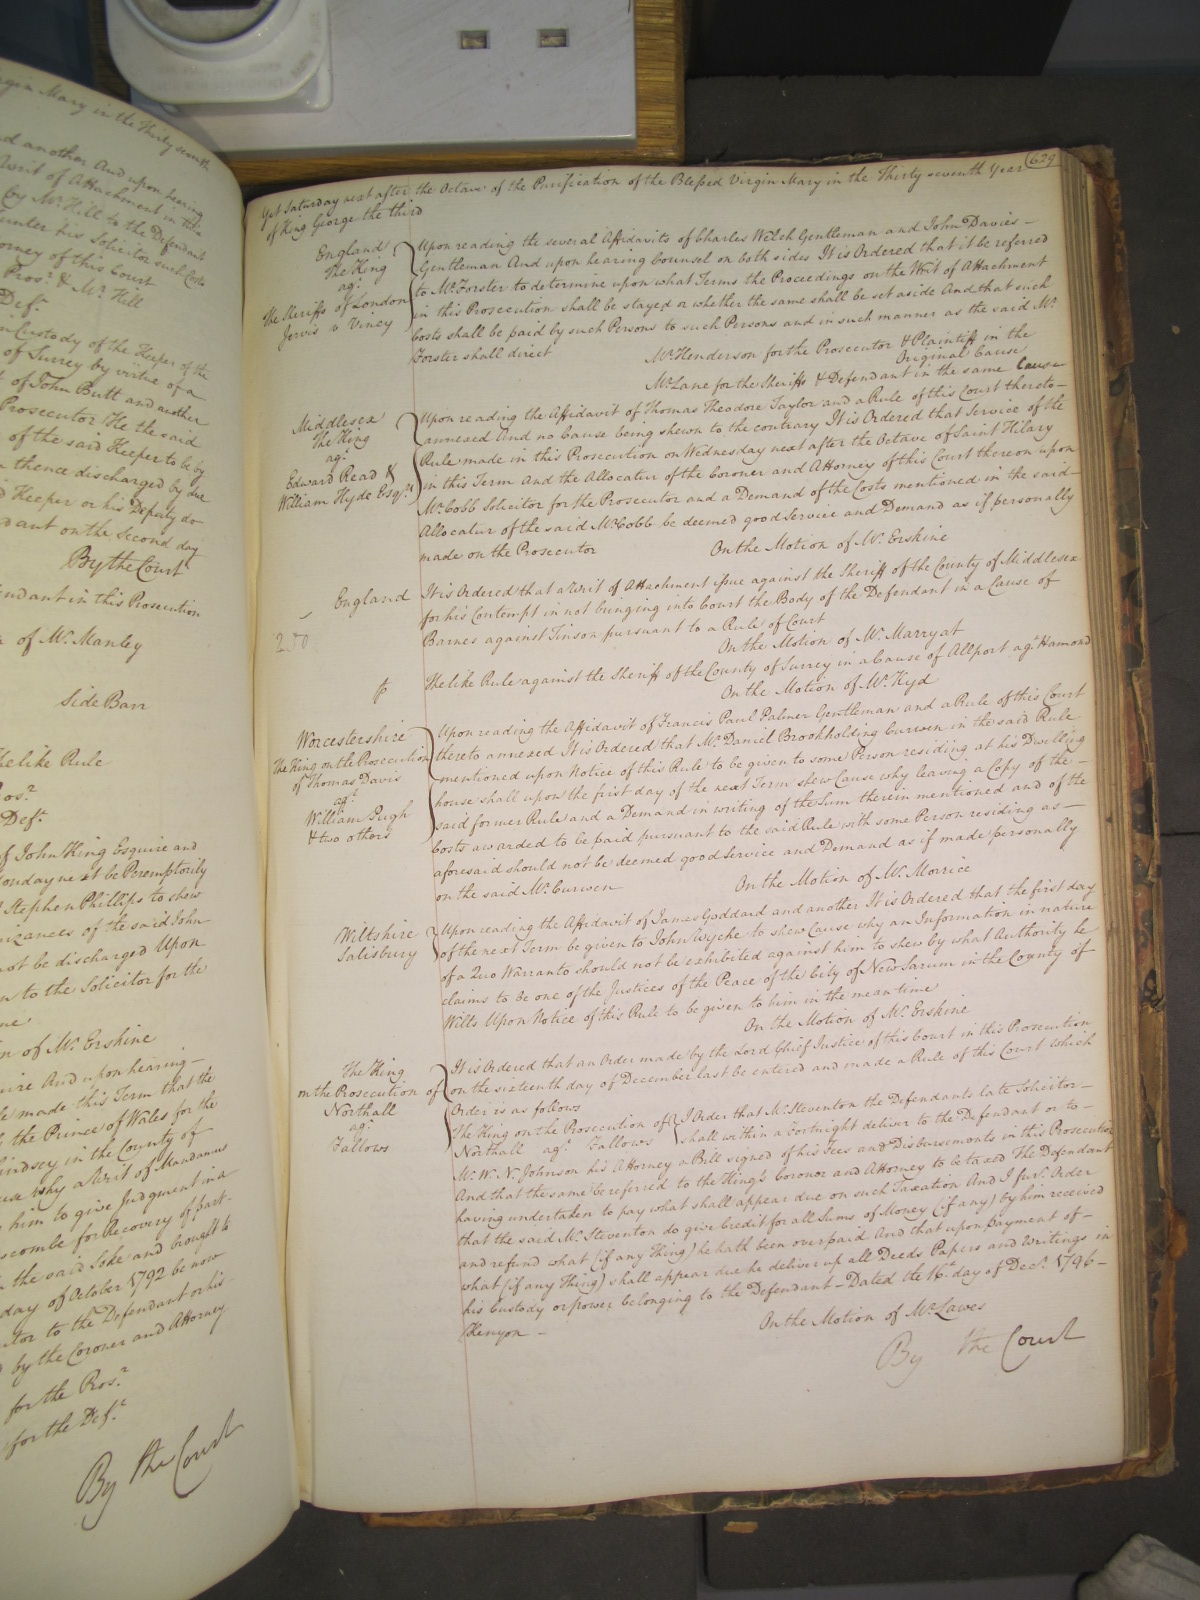 rgin Mary in the Thirty seventh
d another And upon hearing
Writ of Attachment in this
by Mr. Hill to the Defendant
under his Solicitor such Costs
orney of this Court
Prosr. & Mr. Hill
Deft.
Custody of the Keeper of the
of Surrey by virtue of a
of John Butt and another
Prosecutor He the said
of the said Keeper to be by
thence discharged by due
Keeper or his Deputy do
dant on the Second day
By the Court
endant in this Prosecution
of Mr. Manley
Side Barr
he like Rule
ros.r
Def.t
of John King Esquire and
onday next be Peremptorily
Stephen Phillips to shew
nizances of the said John
not be discharged Upon
n to the Solicitor for the
me
n of Mr. Erskine
uire And upon hearing
le made this Term that the
the Prince of Wales for the
indsey in the County of
use why a Writ of Mandamus
him to give Judgment in a
scombe for Recovery of part
the said Soke and brought to
day of October 1792 be now
utor to the Defendant or his
by the Coroner and Attorney
for the Pros.r
for the Def.t
By the Court
629
Yet Saturday next after the Octave of the Purification of the Blessed Virgin Mary in the Thirty seventh Year
of King George the third
England
The King
ag.t
The Sheriffs of London
Jervis v Viney
Upon reading the several Affidavits of Charles Welsh Gentleman and John Davies
Gentleman And upon hearing Counsel on both sides It is Ordered that it be referred
to Mr. Forster to determine upon what Terms the Proceedings on the Writ of Attachment
in this Prosecution shall be stayed or whether the same shall be set aside And that such
Costs shall be paid by such Persons to such Persons and in such manner as the said Mr.
Forster shall direct
Mr. Henderson for the Prosecutor & Plaintiff in the
Original Cause
Mr. Lane for the Sheriffs & Defendant in the same Cause
Middlesex
The King
ag.t
Edward Read &
William Hyde Esq.rs
Upon reading the Affidavit of Thomas Theodore Taylor and a Rule of this Court thereto
annexed And no Cause being shewn to the contrary It is Ordered that Service of the
Rule made in this Prosecution on Wednesday next after the Octave of Saint Hilary
in this Term and the Allocatur of the Coroner and Attorney of this Court thereon upon
Mr. Cobb Solicitor for the Prosecutor and a Demand of the Costs mentioned in the said
Allocatur of the said Mr. Cobb be deemed good Service and Demand as if personally
made on the Prosecutor
On the Motion of Mr. Erskine
England
It is Ordered that a Writ of Attachment issue against the Sheriff of the County of Middlesex
for his Contempt in not bringing into Court the Body of the Defendant in a Cause of
Barnes against Tinson pursuant to a Rule of Court
On the Motion of Mr. Marryat
The like Rule against the Sheriff of the County of Surrey in a Cause of Allport ag.t Hamond
On the Motion of Mr. Kyd
Worcestershire
The King on the Prosecution
of Thomas Davis
ag.t
William Pugh
& two others
Upon reading the Affidavit of Francis Paul Palmer Gentleman and a Rule of this Court
thereto annexed It is Ordered that Mr. Daniel Brookholding Curwen in the said Rule
mentioned upon Notice of this Rule to be given to some Person residing at his Dwelling
house shall upon the first day of the next Term shew Cause why leaving a Copy of the
said former Rule and a Demand in writing of the Sum therein mentioned and of the
Costs awarded to be paid pursuant to the said Rule with some Person residing as
aforesaid should not be deemed good Service and Demand as if made personally
on the said Mr. Curwen
On the Motion of Mr. Morrice
Wiltshire
Salisbury
Upon reading the Affidavit of James Goddard and another It is Ordered that the first day
of the next Term be given to John Wyche to shew Cause why an Information in nature
of a Quo Warranto should not be exhibited against him to shew by what Authority he
claims to be one of the Justices of the Peace of the City of New Sarum in the County of
Wilts Upon Notice of this Rule to be given to him in the mean time
On the Motion of Mr. Erskine
The King
on the Prosecution of
Northall
ag.t
Fallows
It is Ordered that an Order made by the Lord Chief Justice of this Court in this Prosecution
on the sixteenth day of December last be entered and made a Rule of this Court which
Order is as follows
The King on the Prosecution of
Northall ag.t Fallows
I Order that Mr. Steventon the Defendants late Solicitor
shall within a Fortnight deliver to the Defendant or to
Mr. W. N. Johnson his Attorney a Bill signed of his Fees and Disbursements in this Prosecution
And that the same be referred to the King's Coroner and Attorney to be taxed The Defendant
having undertaken to pay what shall appear due on such Taxation And I fur.r Order
that the said Mr. Steventon do give Credit for all Sums of Money (if any) by him received
and refund what (if any Thing) he hath been overpaid And that upon payment of
what (if any Thing) shall appear due he deliver up all Deeds Papers and Writings in
his Custody or power belonging to the Defendant - Dated the 16.th day of Dec.r 1796 -
Kenyon -
On the Motion of Mr. Lawes
By the Court